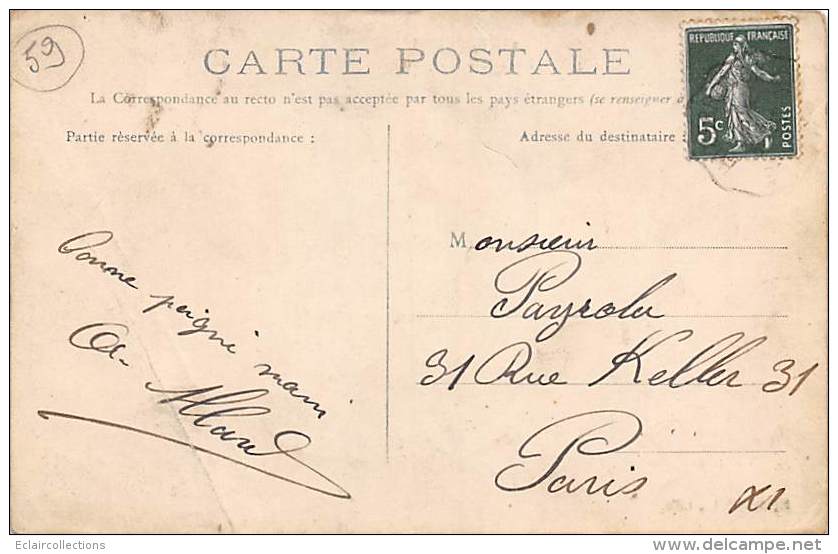 59
CARTE POSTALE
La Correspondance au recto n'est pas acceptée par tous les pays étrangers (se renseigner à
Partie réservée à la correspondance :
Adresse du destinataire :
REPUBLIQUE FRANÇAISE
5c
POSTES
bonne poigné main
A. Allard
Monsieur
Payrola
31 Rue Keller 31
Paris
XI
Eclaircollections
www.delcampe.net